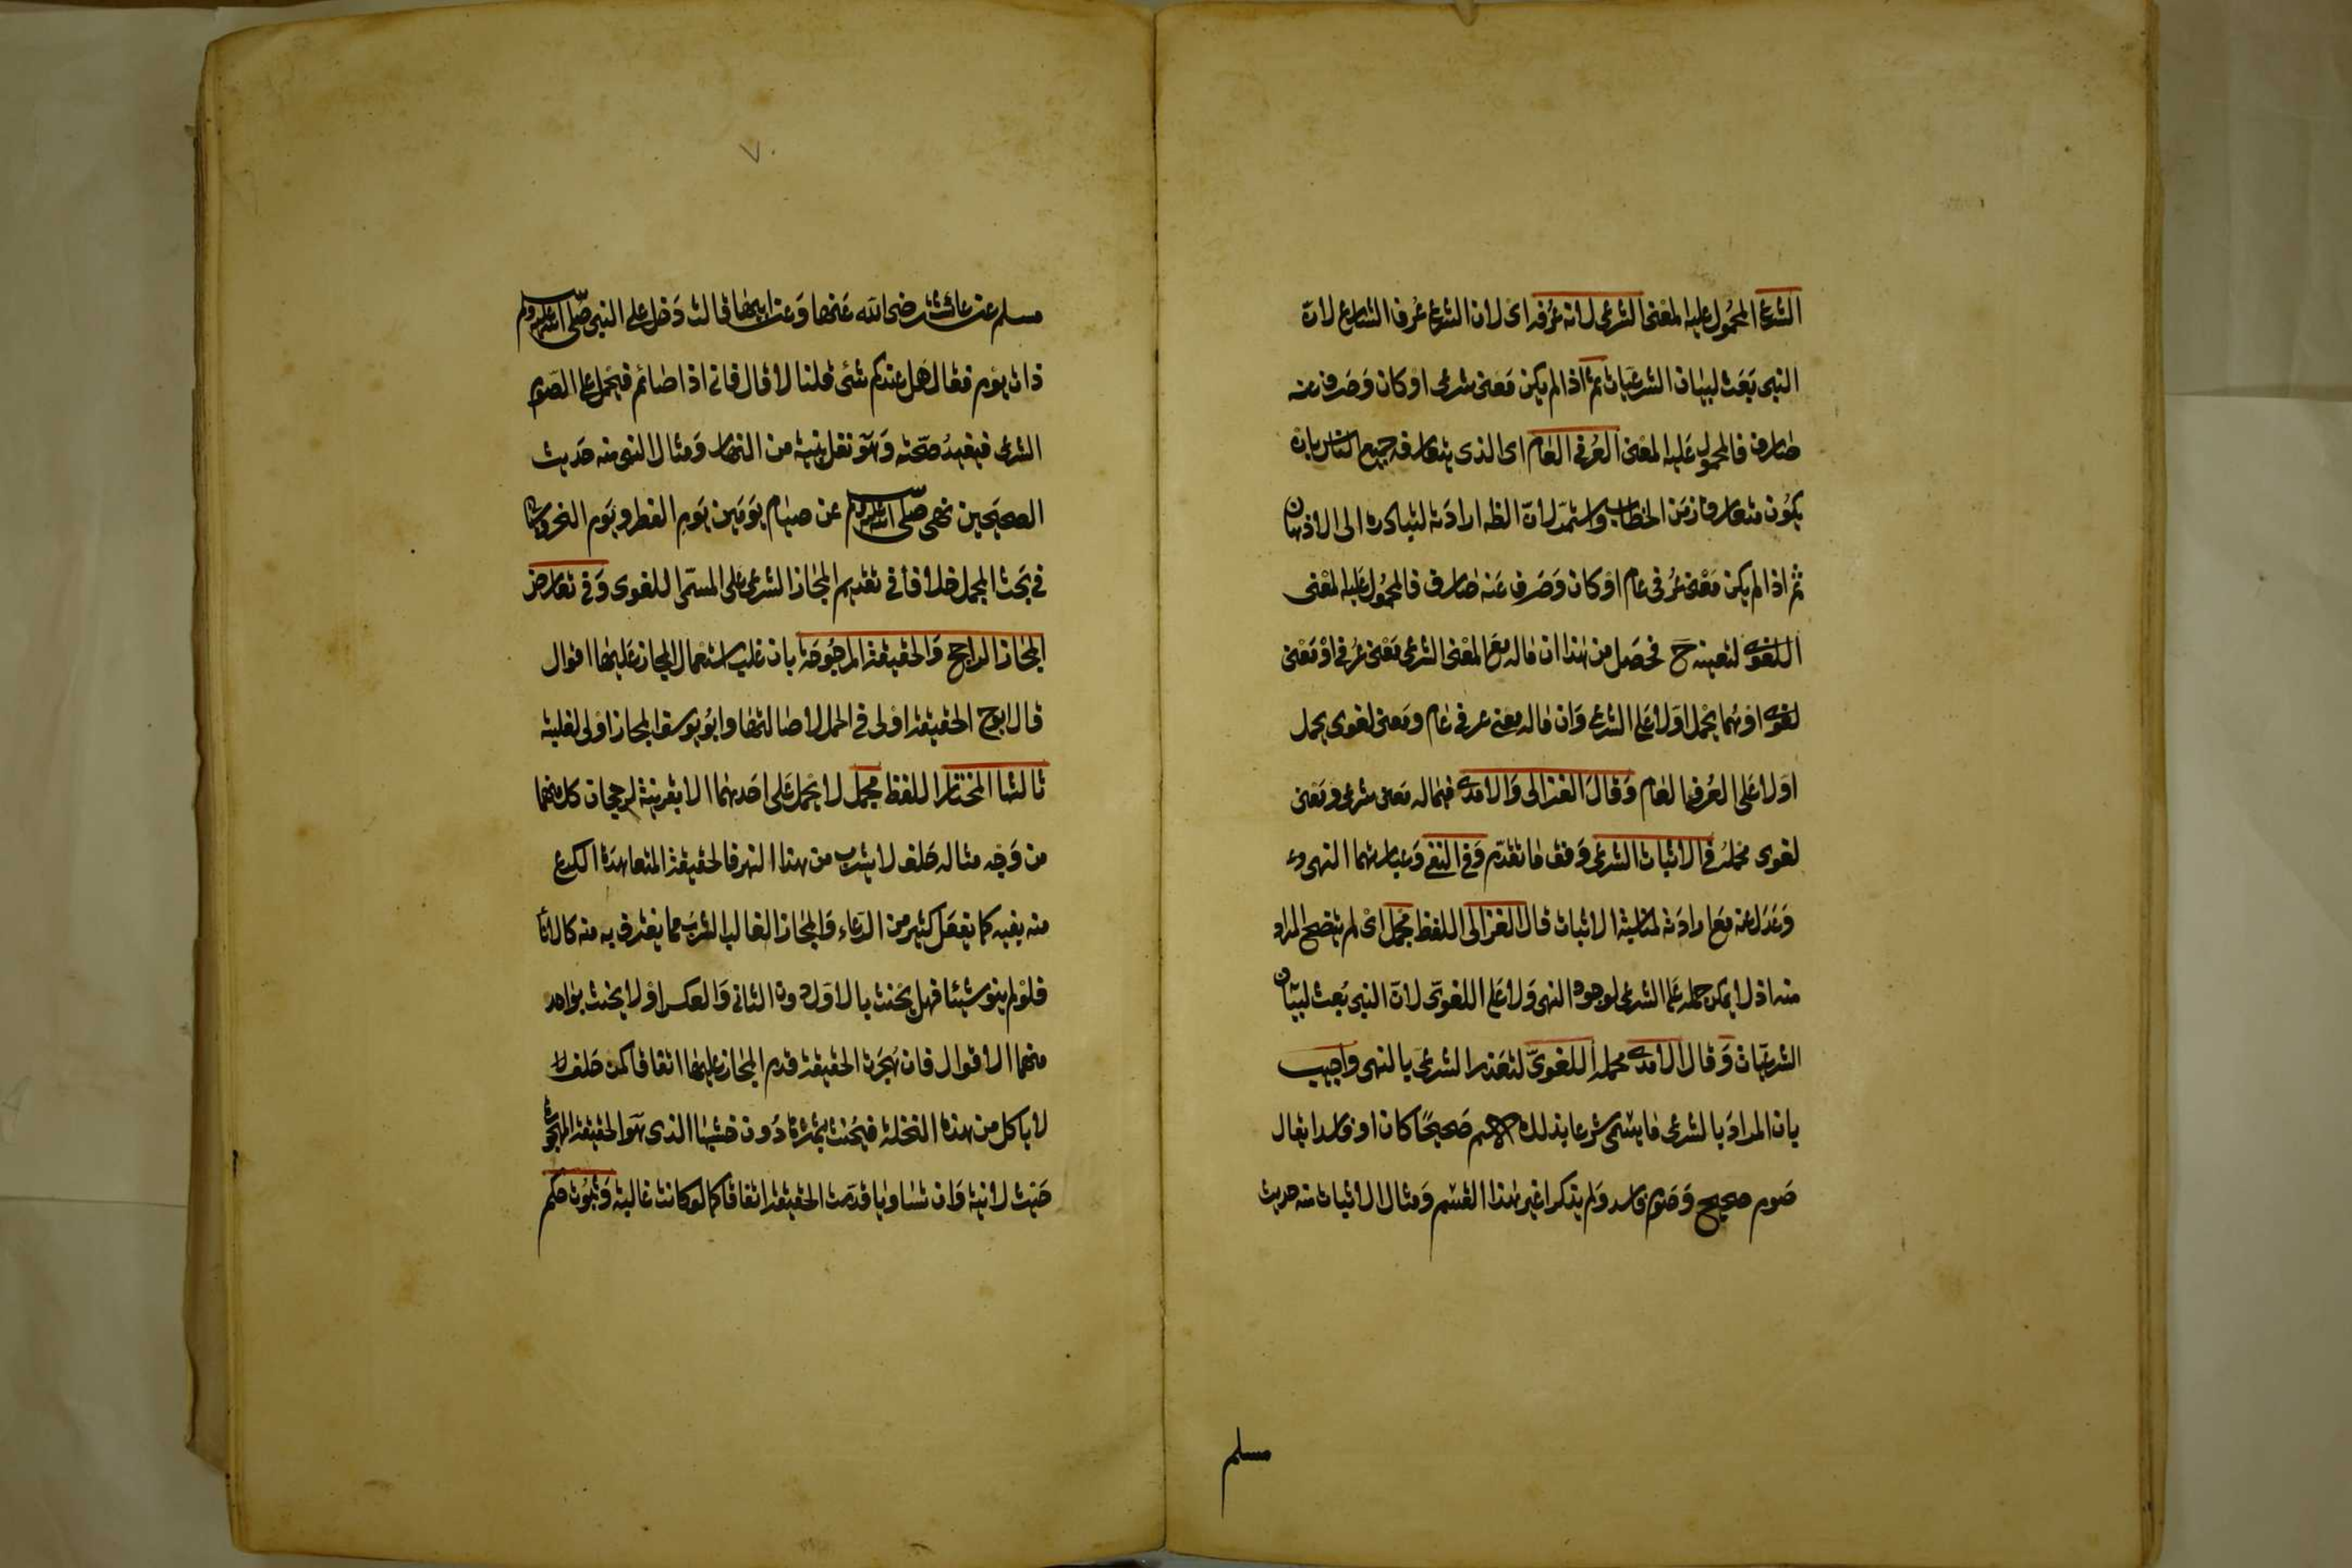 الشرع المحمول عليه المعنى الشرعى لانه عرفه اى لان الشرع عرف الشارع لان
النبى بعث لبيان الشرعيات ثم اذا لم يكن معنى شرعى او كان وصرف عنه
صارف فالمحمول عليه المعنى العرفى العام اى الذى يتعارفه جميع الناس بان
يكون متعارفا زمن الخطاب واستمر لان الظ ارادته لتبادره الى الاذهان
ثم اذا لم يكن معنى عرفى عام او كان وصرف عنه صارف فالمحمول عليه المعنى
اللغوى لتعينه ح فحصل من هذا ان ماله مع المعنى الشرعى معنى عرفى او معنى
لغوى او هما يحمل اولا على الشرعى وان ماله معنى عرفى عام ومعنى لغوى يحمل
اولا على العرفى العام وقال الغزالى والامدى فيما له معنى شرعى ومعنى
لغوى محمله فى الاثبات الشرعى وفق ما تقدم وفى النفى وعبارتهما النهى
وعدل عنه مع ارادته لمناسبة الاثبات قال الغزالى اللفظ مجمل اى لم يتضح المراد
منه اذ لا يمكن حمله على الشرعى لوجود النهى ولا على اللغوى لان النبى بعث لبيان
الشرعيات وقال الامدى محمله اللغوى لتعذر الشرعى بالنهى واجيب
بان المراد بالشرعى ما يسمى شرعا بذلك الاسم صحيحا كان او فاسدا يقال
صوم صحيح وصوم فاسد ولم يذكرا غير هذا القسم ومثال الاثبات منه حديث
مسلم
٧
مسلم عن عائشة رضى الله عنها وعن ابيها قالت دخل على النبى صلى الله عليه وسلم
ذات يوم فقال هل عندكم شئ قلنا لا قال فانى اذا صائم فيحمل على الصوم
الشرعى فيفيد صحته وهو نفل بنية من النهار ومثال النهى منه حديث
الصحيحين نهى صلى الله عليه وسلم عن صيام يومين يوم الفطر ويوم النحر
فى بحث المجمل خلاف فى تقديم المجاز الشرعى على المسمى اللغوى وفى تعارض
المجاز الراجح والحقيقة المرجوحة بان غلب استعمال المجاز عليها اقوال
قال ابوح الحقيقة اولى فى الحمل لاصالتها وابو يوسف المجاز اولى لغلبته
ثالثها المختار اللفظ مجمل لا يحمل على احدهما الا بقرينة لرجحان كل منهما
من وجه مثاله حلف لا يشرب من هذا النهر فالحقيقة المتعاهدة الكرع
منه بفيه كما يفعل كثير من الرعاء والمجاز الغالب الشرب مما يغترف به منه كالاناء
فلو لم ينو شيئا فهل يحنث بالاول دون الثانى والعكس او لا يحنث بواحد
منهما الاقوال فان هجرت الحقيقة قدم المجاز عليها اتفاقا كمن حلف لا
لا ياكل من هذه النخلة فيحنث بثمرها دون خشبها الذى هو الحقيقة المهجورة
حيث لا نية وان تساويا قدمت الحقيقة اتفاقا كما لو كانت غالبة وثبوت حكم